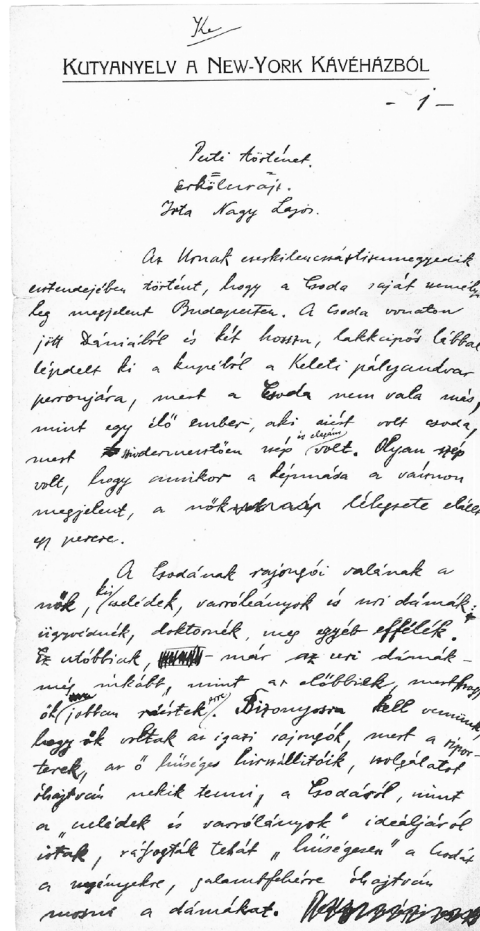 Ke
KUTYANYELV A NEW-YORK KÁVÉHÁZBÓL
- 1 -
Pesti történet.
erkölcsrajz.
Irta Nagy Lajos.
Az Urnak ezerkilencszáztizennegyedik
esztendejében történt, hogy a Csoda saját személyé-
leg megjelent Budapesten. A Csoda vonaton
jött Dániából és két hosszu, lakkcipős lábbal
lépdelt ki a kupéból a Keleti pályaudvar
perronjára, mert a Csoda nem vala más,
mint egy élő ember, aki azért volt csoda,
mert szép és elegáns volt. Olyan szép
volt, hogy amikor a képmása a vásznon
megjelent, a nők lélegzete elállt
egy percre.
A Csodának rajongói valának a
nők, kis cselédek, varróleányok és uri dámák:
ügyvédnék, doktornék, meg egyéb effélék.
Ez utóbbiak, - már az uri dámák -
még inkább, mint az előbbiek, mert hogy
ők jobban ráértek erre. Bizonyosra kell vennünk,
hogy ők voltak az igazi rajongók, mert a ripor-
terek, az ő hűséges hirszállitóik, szolgálatot
óhajtván nekik tenni, a Csodáról, mint
a „cselédek és varrólányok" ideáljáról
irtak, ráfogták tehát „hűségesen" a Csodát
a szegényekre, galambfehérre óhajtván
mosni a dámákat.